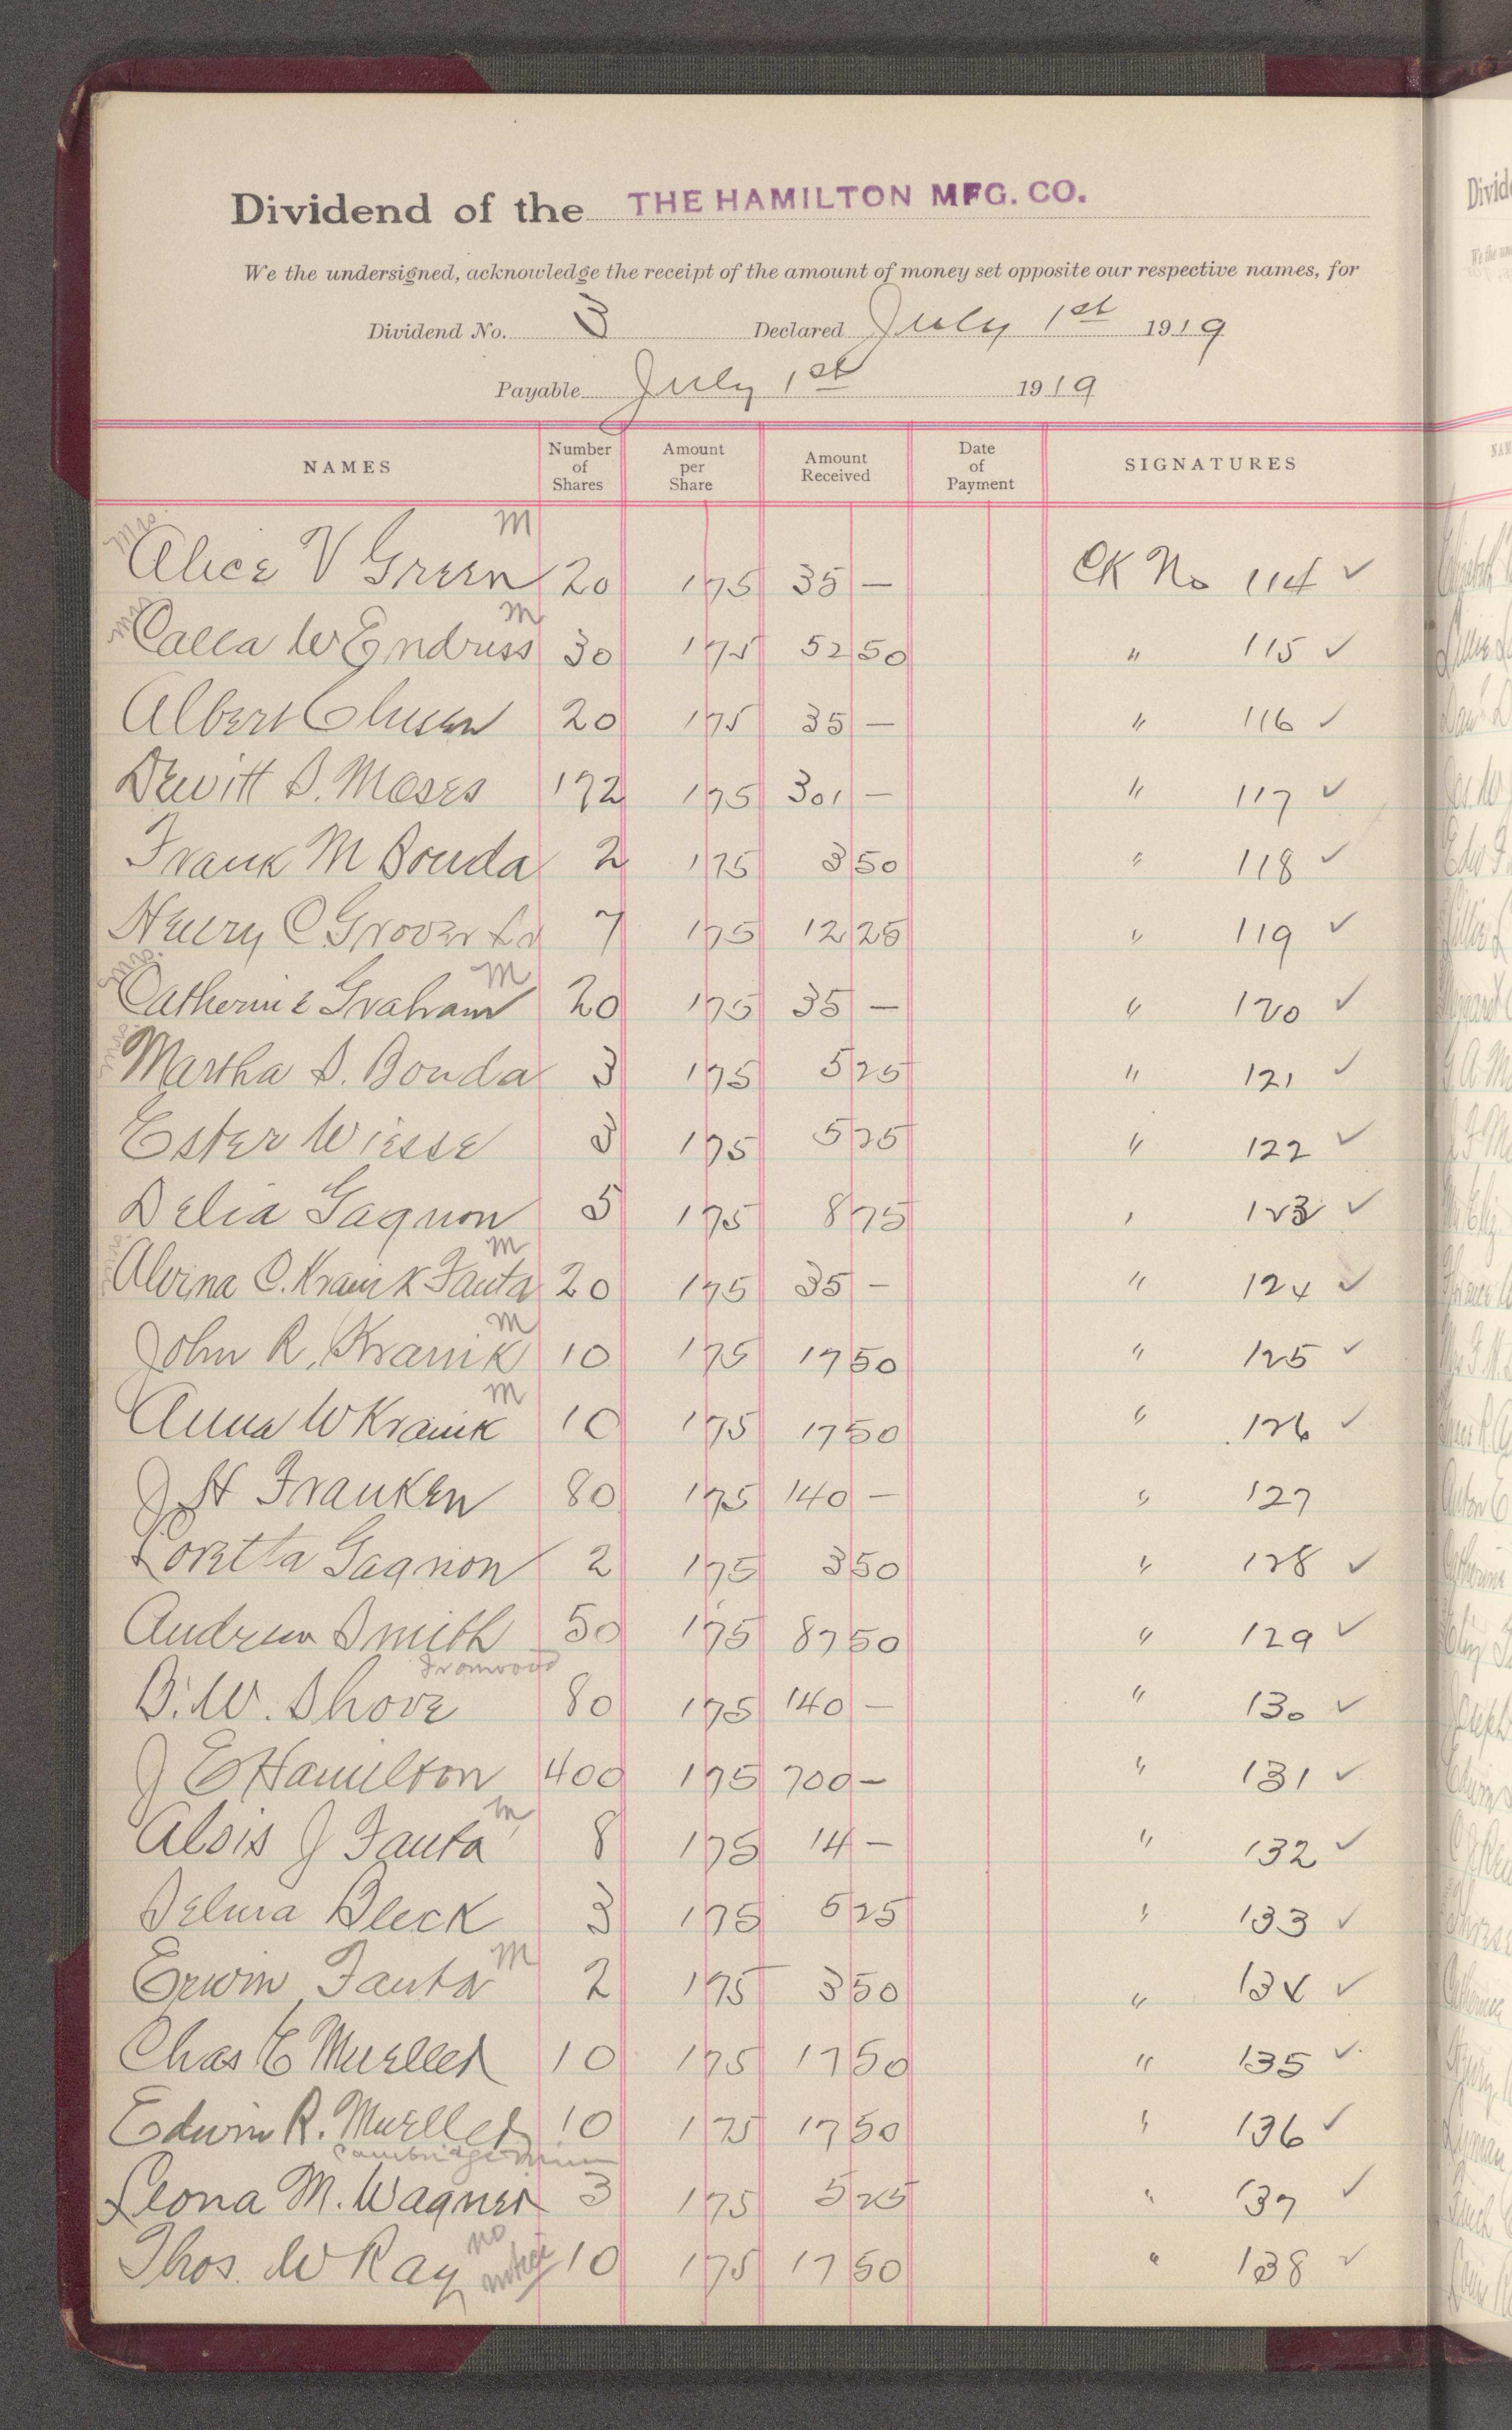 Dividend of the THE HAMILTON MFG. CO.
We the undersigned, acknowledge the receipt of the amount of money set opposite our respective names, for
Dividend No. 3 Declared July 1st 1919
Payable July 1st 1919
NAMES Number of Shares Amount per Share Amount Received Date of Payment SIGNATURES
Mrs Alice V Green M 20 1 75 35 — CK No 114 ✓
Mrs Calla W Endriss M 30 1 75 52 50 " 115 ✓
Albert Clusen 20 1 75 35 — " 116 ✓
Dewitt S. Moses 172 1 75 301 — " 117 ✓
Frank M Bouda 2 1 75 3 50 " 118 ✓
Henry C Grover 7 1 75 12 25 " 119 ✓
Mrs. Catherine Graham M 20 1 75 35 — " 120 ✓
Martha S. Bouda 3 1 75 5 25 " 121 ✓
Ester Wiesse 3 1 75 5 25 " 122 ✓
Delia Gagnon 5 1 75 8 75 " 123 ✓
Alvina C. Kranik Fauta M 20 1 75 35 — " 124 ✓
John R. Kranik M 10 1 75 17 50 " 125 ✓
Anna W Kranik M 10 1 75 17 50 " 126 ✓
J H Franken 80 1 75 140 — " 127
Loretta Gagnon 2 1 75 3 50 " 128 ✓
Andrew Smith 50 1 75 87 50 " 129 ✓
Ironwood
B. W. Shove 80 1 75 140 — " 130 ✓
J E Hamilton 400 1 75 700 — " 131 ✓
Alois J Fauta M 8 1 75 14 — " 132 ✓
Selma Bleck 3 1 75 5 25 " 133 ✓
Erwin Fauta M 2 1 75 3 50 " 134 ✓
Chas E Mueller 10 1 75 17 50 " 135 ✓
Edwin R. Mueller 10 1 75 17 50 " 136 ✓
Cambridge Minn
Leona M. Wagner 3 1 75 5 25 " 137 ✓
Thos. W Ray no notice 10 1 75 17 50 " 138 ✓